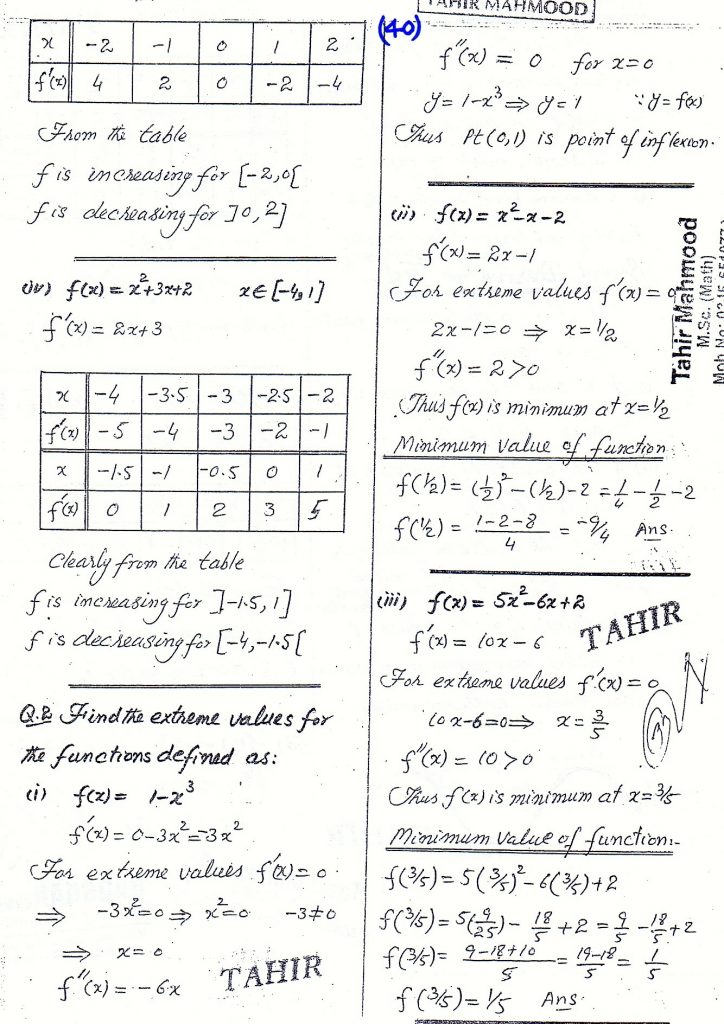 TAHIR MAHMOOD
(40)
x | -2 | -1 | 0 | 1 | 2
f'(x) | 4 | 2 | 0 | -2 | -4
From the table
f is increasing for [-2,0[
f is decreasing for ]0,2]
(iv) f(x) = x²+3x+2 x∈[-4,1]
f'(x) = 2x+3
x | -4 | -3.5 | -3 | -2.5 | -2
f'(x) | -5 | -4 | -3 | -2 | -1
x | -1.5 | -1 | -0.5 | 0 | 1
f'(x) | 0 | 1 | 2 | 3 | 5
Clearly from the table
f is increasing for ]-1.5,1]
f is decreasing for [-4,-1.5[
Q.2 Find the extreme values for
the functions defined as:
(i) f(x) = 1-x³
f'(x) = 0-3x²=-3x²
For extreme values f'(x)=0
⇒ -3x²=0 ⇒ x²=0 -3≠0
⇒ x=0
f''(x) = -6x
TAHIR
f''(x) = 0 for x=0
y = 1-x³ ⇒ y=1 ∵ y=f(x)
Thus Pt(0,1) is point of inflexion.
(ii) f(x) = x²-x-2
f'(x) = 2x-1
For extreme values f'(x) = 0
2x-1=0 ⇒ x=1/2
f''(x) = 2>0
Thus f(x) is minimum at x=1/2
Minimum value of function
f(1/2) = (1/2)²-(1/2)-2 = 1/4 - 1/2 -2
f(1/2) = 1-2-8/4 = -9/4 Ans.
(iii) f(x) = 5x²-6x+2
TAHIR
f'(x) = 10x-6
For extreme values f'(x)=0
10x-6=0 ⇒ x=3/5
f''(x) = 10>0
Thus f(x) is minimum at x=3/5
Minimum value of function:-
f(3/5) = 5(3/5)²-6(3/5)+2
f(3/5) = 5(9/25) - 18/5 +2 = 9/5 - 18/5 +2
f(3/5) = 9-18+10/5 = 19-18/5 = 1/5
f(3/5) = 1/5 Ans.
Tahir Mahmood
M.Sc. (Math)
Mob No: